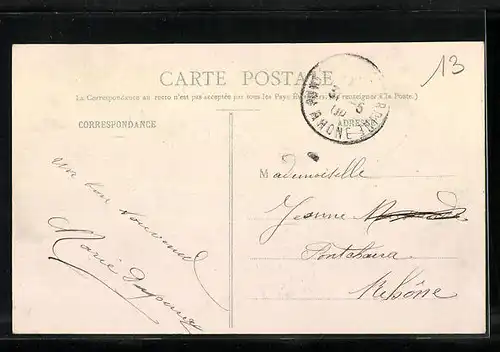 CARTE POSTALE
(La Correspondance au recto n'est pas acceptée par tous les Pays
à la Poste.)
CORRESPONDANCE
ADRESSE
RHONE
13
un bon souvenir
Marie
Mademoiselle
Jeanne
Pontcharra
Rhône